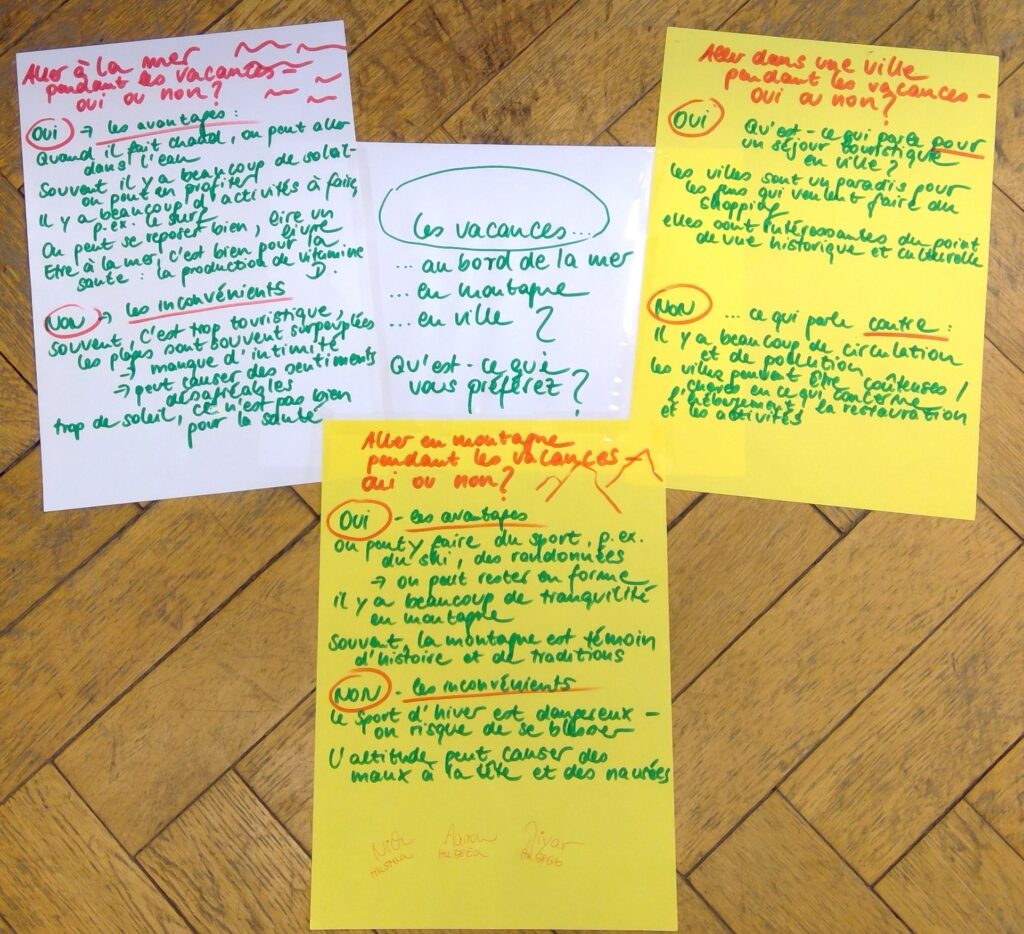 Aller à la mer
pendant les vacances –
oui ou non?
OUI → les avantages :
Quand il fait chaud, on peut aller
dans l'eau
Souvent il y a beaucoup de soleil –
on peut en profiter
Il y a beaucoup d'activités à faire,
p. ex. le surf
On peut se reposer bien, lire un
livre
Etre à la mer, c'est bien pour la
santé : la production de vitamine
D.
NON → les inconvénients
Souvent, c'est trop touristique,
les plages sont souvent surpeuplées
→ manque d'intimité
→ peut causer des sentiments
désagréables
trop de soleil, ce n'est pas bien
pour la santé
les vacances...
... au bord de la mer
... en montagne
... en ville ?
Qu'est-ce que
vous préférez ?
Aller dans une ville
pendant les vacances –
oui ou non?
OUI
Qu'est-ce qui parle pour
un séjour touristique
en ville?
les villes sont un paradis pour
les gens qui veulent faire du
shopping
elles sont intéressantes du point
de vue historique et culturelle
NON ... ce qui parle contre :
Il y a beaucoup de circulation
et de pollution
les villes peuvent être coûteuses /
chères en ce qui concerne
l'hébergement, la restauration
et les activités
Aller en montagne
pendant les vacances –
oui ou non?
OUI - les avantages
on peut y faire du sport, p. ex.
du ski, des randonnées
→ on peut rester en forme
il y a beaucoup de tranquilité
en montagne
Souvent, la montagne est témoin
d'histoire et de traditions
NON - les inconvénients
le sport d'hiver est dangereux –
on risque de se blesser
L'altitude peut causer des
maux à la tête et des nausées
Aaron